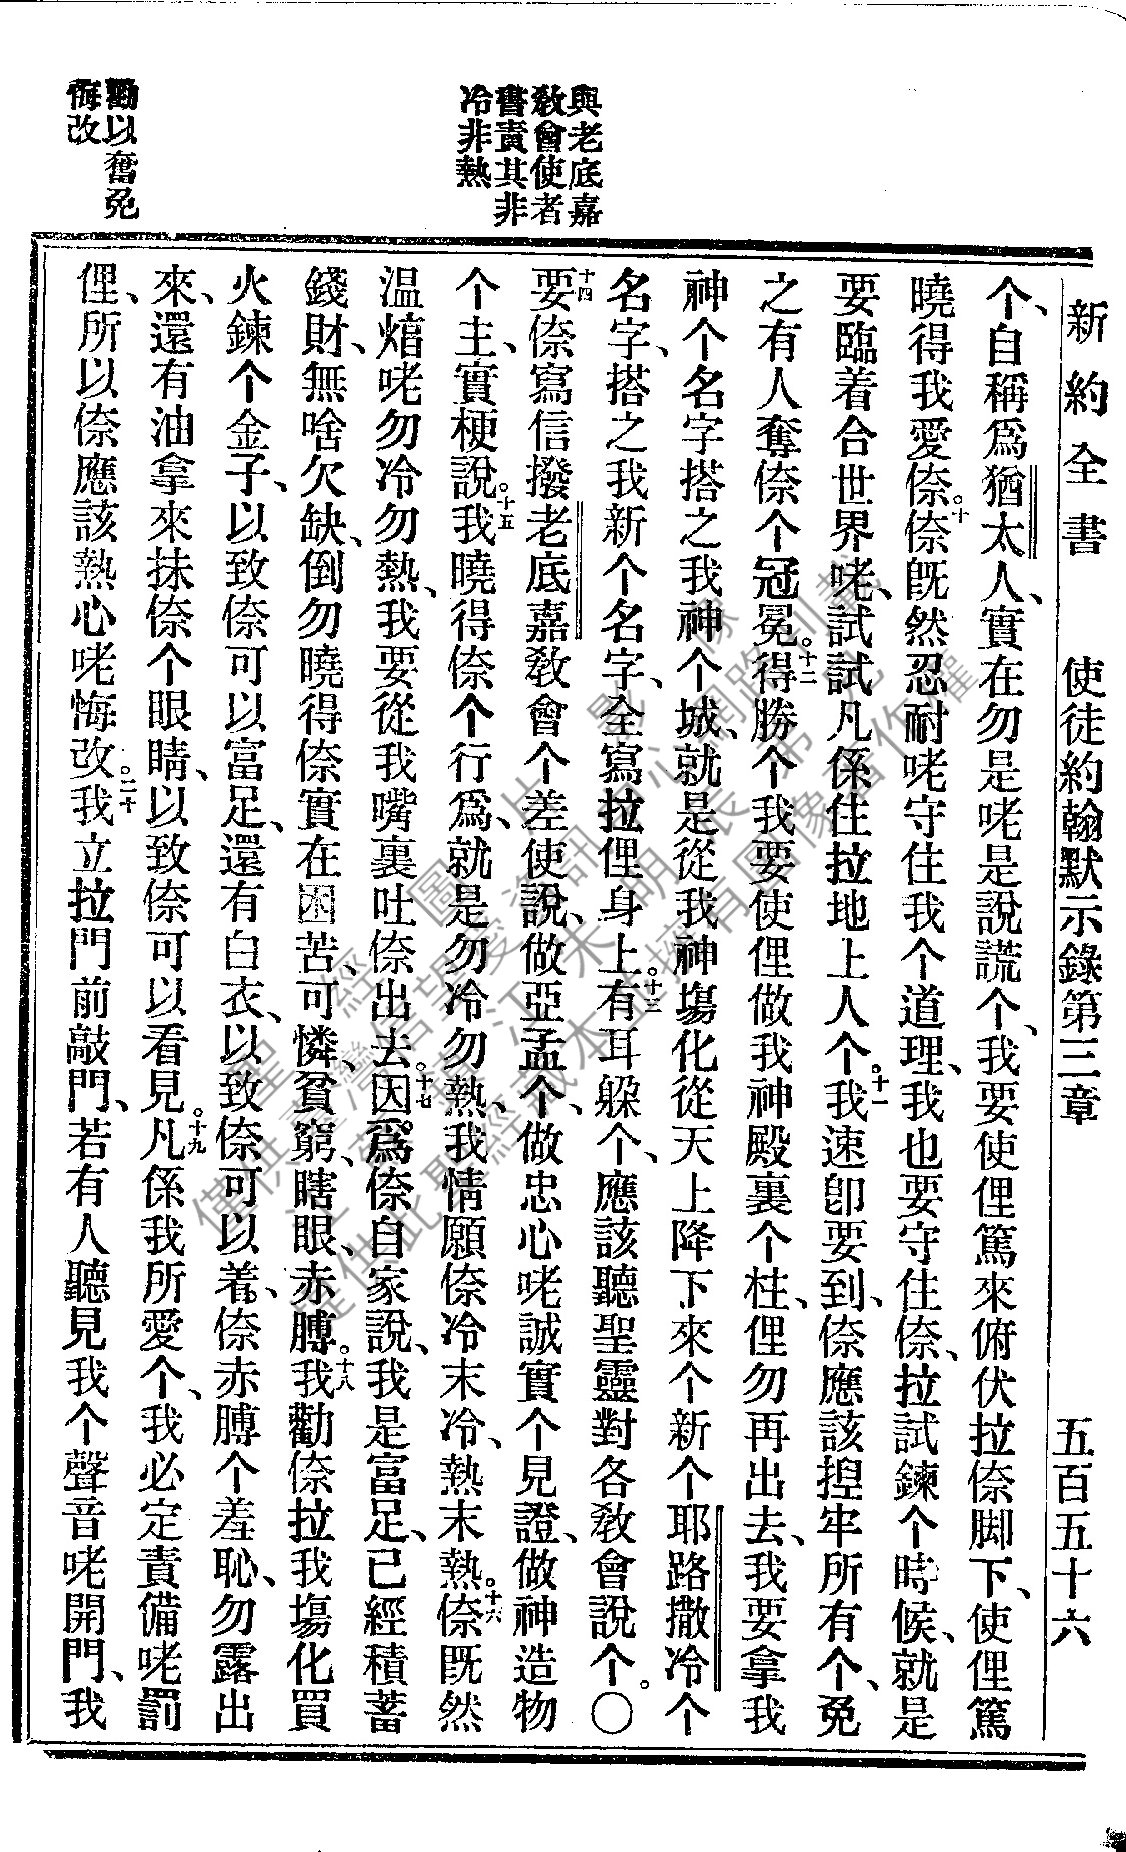 新約全書 使徒約翰默示錄第三章 五百五十六
个、自稱爲猶太人、實在勿是咾是說謊个、我要使俚篤來俯伏拉倷脚下、使俚篤
曉得我愛倷。十倷旣然忍耐咾守住我个道理、我也要守住倷、拉試鍊个時候、就是
要臨着合世界咾、試試凡係住拉地上人个。十一我速卽要到、倷應該揑牢所有个、免
之有人奪倷个冠冕。十二得勝个我要使俚做我神殿裏个柱、俚勿再出去、我要拿我
神个名字搭之我神个城、就是從我神塲化從天上降下來个新个耶路撒冷个
名字、搭之我新个名字、全寫拉俚身上。十三有耳躲个、應該聽聖靈對各敎會說个。〇
十四要倷寫信撥老底嘉敎會个差使說、做亞孟个、做忠心咾誠實个見證、做神造物
个主、實梗說。十五我曉得倷个行爲、就是勿冷勿熱、我情願倷冷末冷、熱末熱。十六倷旣然
溫㷄咾勿冷勿熱、我要從我嘴裏吐倷出去。十七因爲倷自家說、我是富足、已經積蓄
錢財、無啥欠缺、倒勿曉得倷實在困苦、可憐、貧窮、瞎眼、赤膊。十八我勸倷拉我塲化買
火鍊个金子、以致倷可以富足、還有白衣、以致倷可以着、倷赤膊个羞恥、勿露出
來、還有油拿來抹倷个眼睛、以致倷可以看見。十九凡係我所愛个、我必定責備咾罰
俚、所以倷應該熱心咾悔改。二十我立拉門前敲門、若有人聽見我个聲音咾開門、我
與老底嘉
敎會使者
書責其非
冷非熱
勸以奮免
悔改
聖經圖片影像